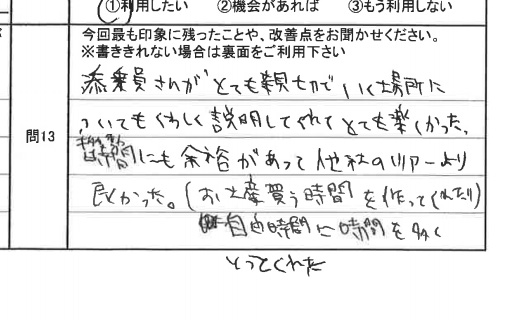 ①利用したい　②機会があれば　③もう利用しない
問13
今回最も印象に残ったことや、改善点をお聞かせください。
※書ききれない場合は裏面をご利用下さい
添乗員さんがとても親切でいく場所に
ついてもくわしく説明してくれてとても楽しかった。
時間にも余裕があって他社のツアーより
良かった。(お土産買う時間を作ってくれたり)
自由時間に時間を多く
とってくれた